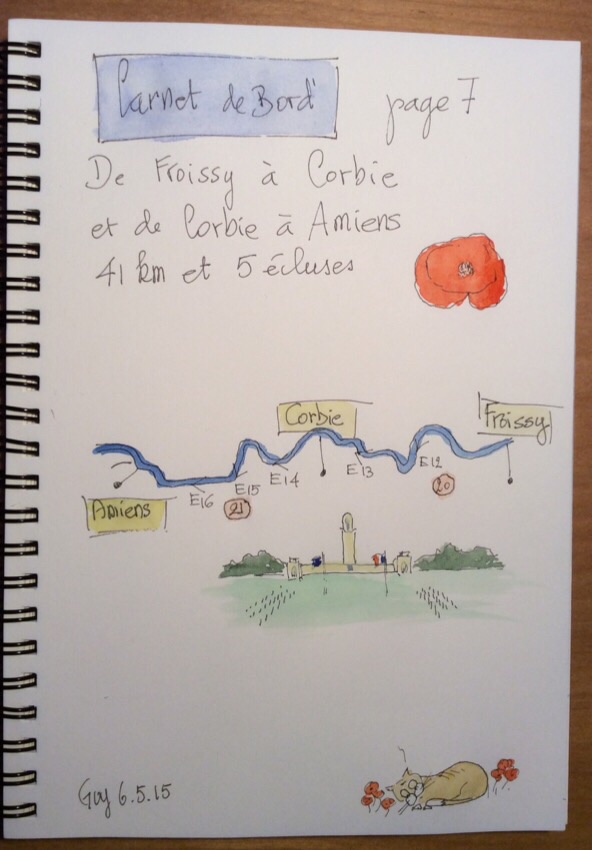 Carnet de Bord
page 7
De Froissy à Corbie
et de Corbie à Amiens
41 km et 5 écluses
Corbie
Froissy
E12
E13
E14
E15
E16
20
21
Amiens
Guy 6.5.15